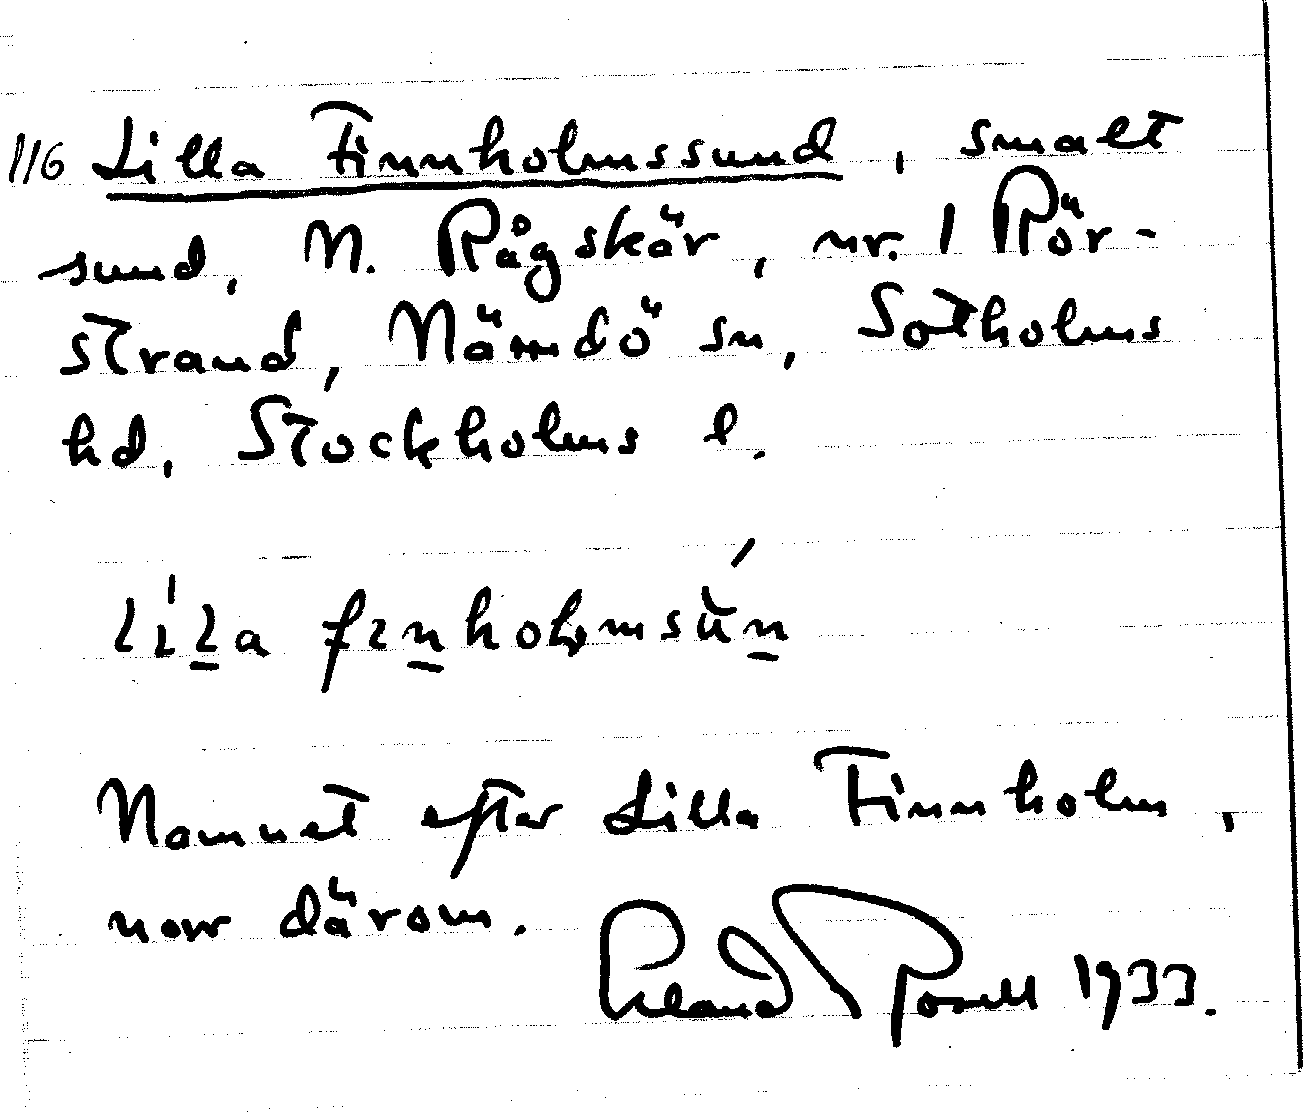 116 Lilla Finnholmssund, smalt
sund, N. Rågskär, nr. 1 Rör-
strand, Nämdö sn, Sotholms
hd, Stockholms l.
Namnet efter Lilla Finnholm,
norr därom.
Erland Rosell 1933.